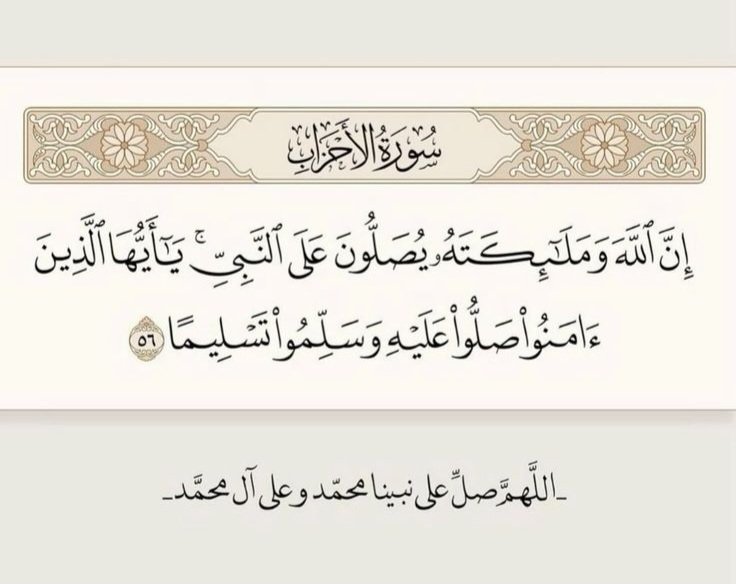 سُورَةُ الأَحْزَابِ
إِنَّ ٱللَّهَ وَمَلَـٰٓئِكَتَهُۥ يُصَلُّونَ عَلَى ٱلنَّبِىِّ ۚ يَـٰٓأَيُّهَا ٱلَّذِينَ
ءَامَنُوا۟ صَلُّوا۟ عَلَيْهِ وَسَلِّمُوا۟ تَسْلِيمًا ٥٦
-اللَّهمَّ صلِّ على نبينا محمّد وعلى آل محمَّد-